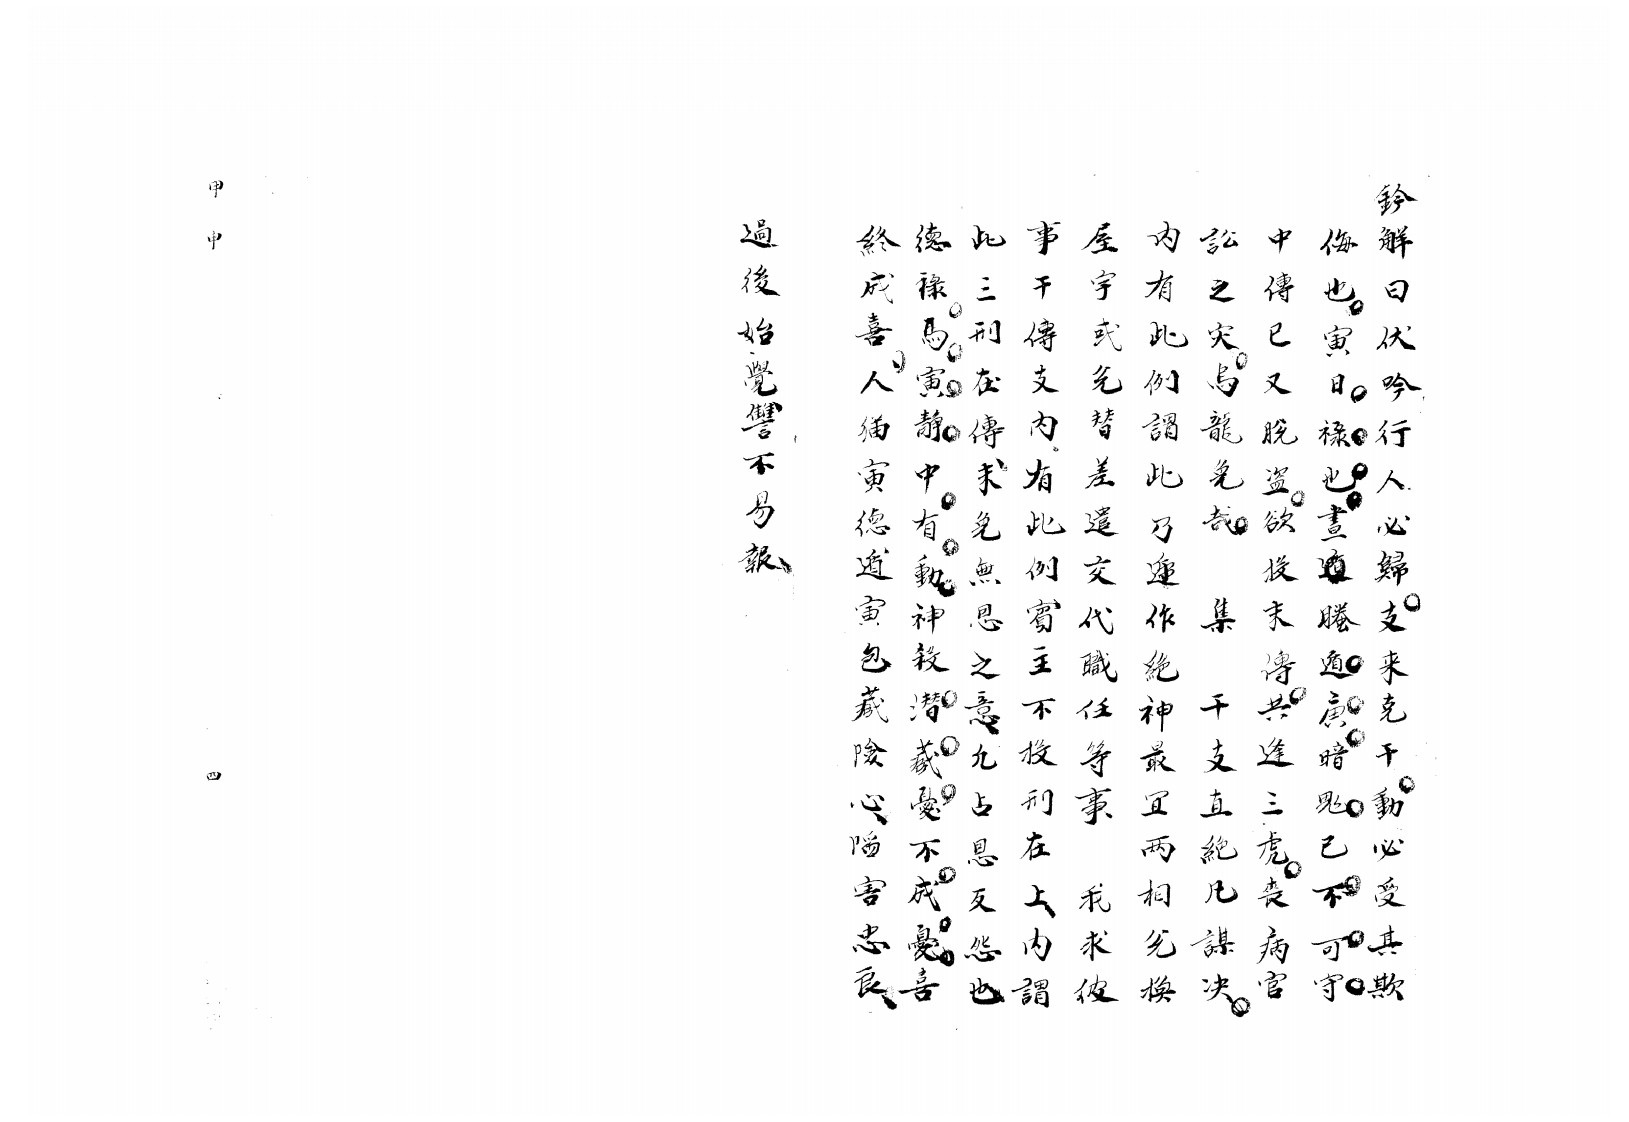 鈐解曰伏吟行人必歸支来克干動必受其欺
侮也寅日禄也晝遁騰遁庚暗鬼已不可守
中傳巳又脱盗欲投末傳共逢三虎喪病官
訟之灾烏能免哉　集　干支直絶凡謀决
内有此例謂此乃遞作絶神最宜两相兊換
屋宇或兊替差遣交代職任等事　我求彼
事干傳支内有此例賓主不投刑在上内謂
此三刑在傳末免無恩之意凢占恩反怨也
德禄馬寅静中有動神殺潛藏憂不成憂喜
終成喜人猫寅德遁寅包藏隂心隂害忠良
過後始覺讐不易報
甲申
四